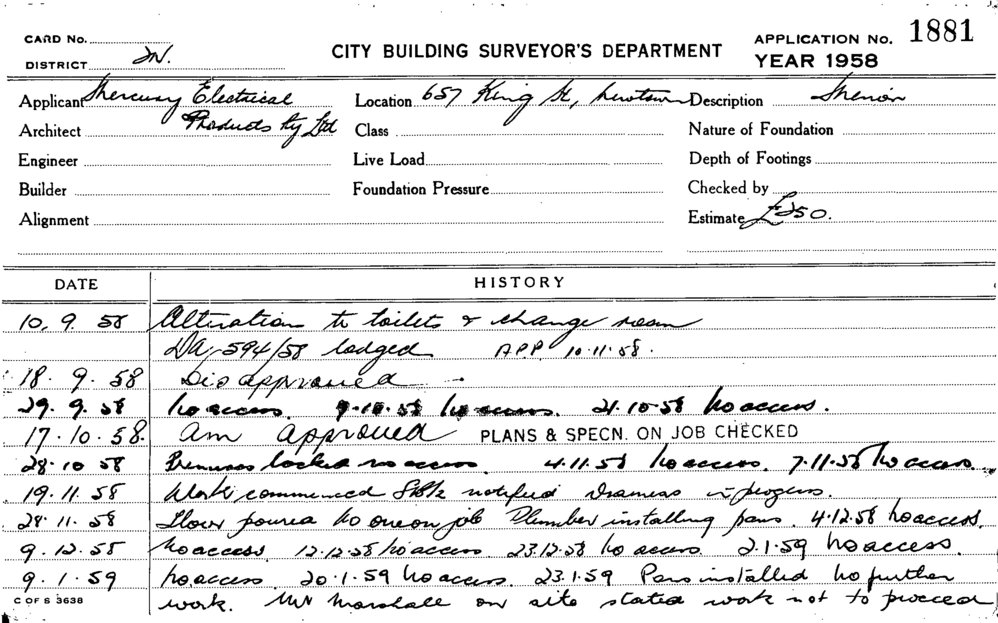 CARD No.
DISTRICT
CITY BUILDING SURVEYOR'S DEPARTMENT
APPLICATION No. 1881
YEAR 1958
Applicant Mercury Electrical Products Pty Ltd
Location 657 King St, Newtown
Description
Architect
Class
Nature of Foundation
Engineer
Live Load
Depth of Footings
Builder
Foundation Pressure
Checked by
Alignment
Estimate £250.
DATE HISTORY
10. 9. 58 Alterations to toilets & change room
DA 594/58 lodged APP 10.11.58.
18. 9. 58 Disapproved
29. 9. 58 No access. 9.10.58 No access. 21.10.58 No access.
17.10.58. Am approved PLANS & SPECN. ON JOB CHECKED
28.10.58 Premises locked no access. 4.11.58 No access. 7.11.58 No access.
19.11.58 Work commenced notified in progress.
28.11.58 Floor poured No one on job Plumber installing pans. 4.12.58 No access.
9.12.58 No access. 12.12.58 No access 23.12.58 No access. 2.1.59 No access.
9.1.59 No access. 20.1.59 No access. 23.1.59 Pans installed No further
C OF S 3638
work. Mr Marshall on site stated work not to proceed